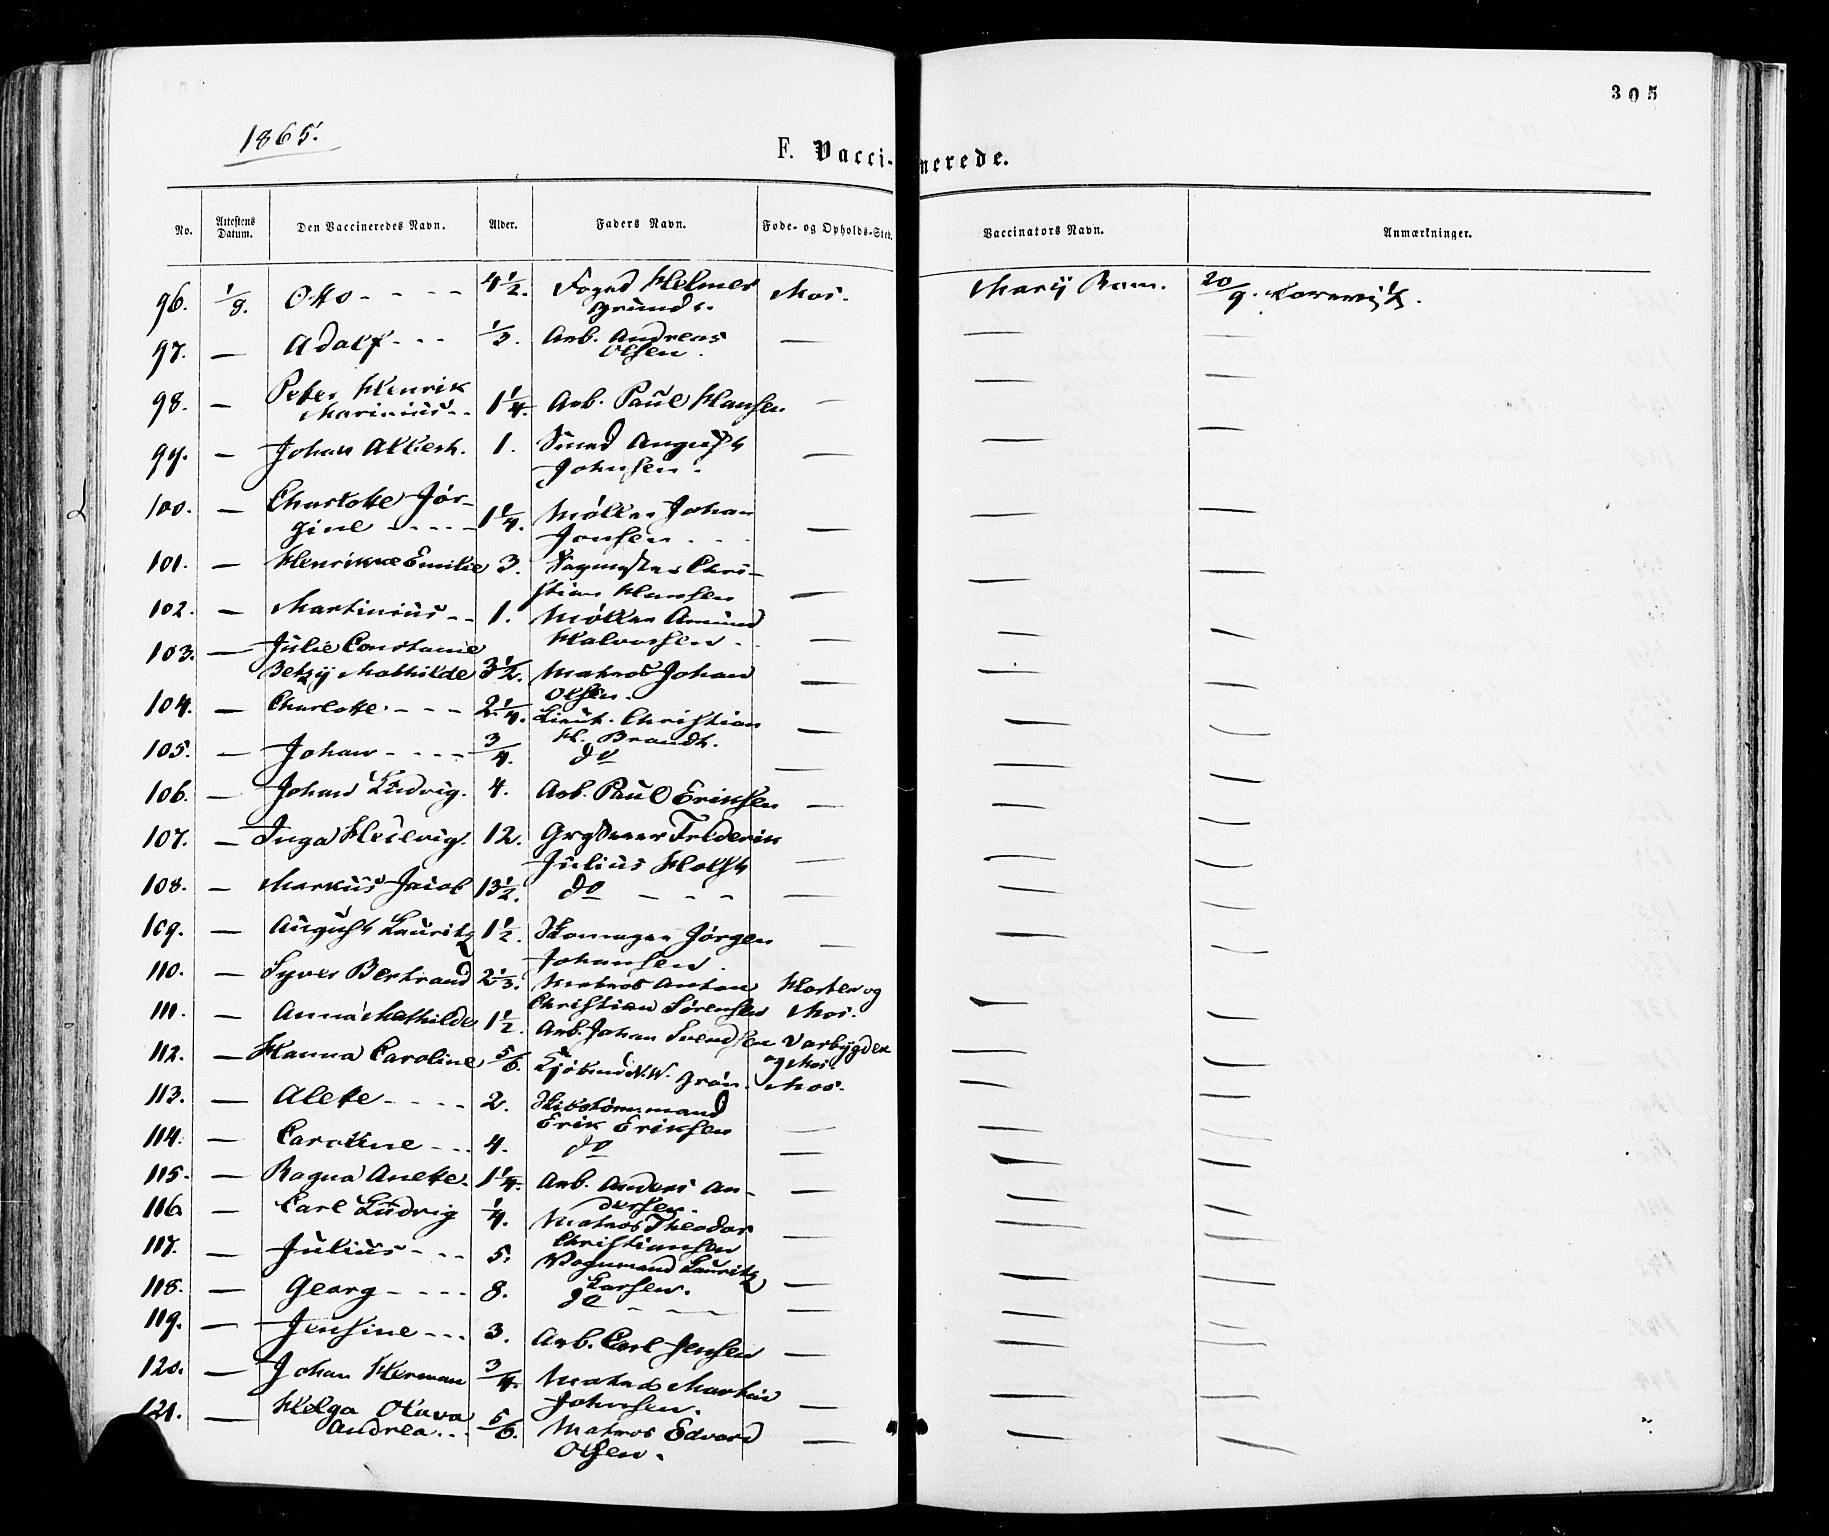 305
1865.
F. Vaccinerede.
No. Attestens Datum. Den Vaccineredes Navn. Alder. Faders Navn. Føde- og Opholds-Sted. Vaccinators Navn. Anmærkninger.
96. 1/9. Otto - - - - 4 1/2. Foged Helmer Mos. Marij Ram. 20/9.
Grund
97. — Adolf - - - 1/3. Arb. Andreas — — —
Olsen.
98. — Peter Henrik
Marinius - - 1 1/4. Arb. Paul Hansen — — —
99. — Johan Albert. 1. Smed August — — —
Johnsen.
100. — Charlotte Jør-
gine - - - - 1 1/4. Møller Johan — — —
Jonsen - -
101. — Henrikke Emilie 3. Sagmester Chri-
stian Hansen — — —
102. — Martinius - - 1. Møller Amund
Halvorsen - - — — —
103. — Julie Constance
Betzy Mathilde 3 1/2. Matros Johan — — —
Olsen.
104. — Charlotte - - - 2 1/4. Lieut. Christian — — —
H. Brandt.
105. — Johan - - - - 3/4. do — — —
106. — Johan Ludvig. 4. Arb. Paul Eriksen — — —
107. — Inga Hedevig. 12. Frederik
Julius Holst — — —
108. — Markus Jacob 13 1/2. do - - - — — —
109. — August Lauritz 1 1/2. Skomager Jørgen — — —
Johansen.
110. — Syver Bertrand 2 1/3. Matros Anton Horten og
Christian Sørensen Mos. — —
111. — Anna Mathilde 1 1/2. Arb. Johan Svendsen Varbygden
og Mos. — —
112. — Hanna Caroline 5/6. Kjøbmd N. W. Grøn. Mos. — —
113. — Alette - - - - 2. Skibstømmermand
Erik Eriksen — — —
114. — Caroline - - - 4. do — — —
115. — Ragna Anette. 1 1/4. Arb. Anders An- — — —
dersen.
116. — Carl Ludvig 1/4. Matros Theodor
Christiansen — — —
117. — Julius - - - 5. Vognmand Lauritz
Larsen. — — —
118. — Georg - - - - 8. do - - - — — —
119. — Jensine - - - 3. Arb. Carl Jensen — — —
120. — Johan Herman 3/4. Matros Martin
Johnsen. — — —
121. — Helga Otava
Andrea - - - 5/6. Matros Edvard — — —
Olsen.